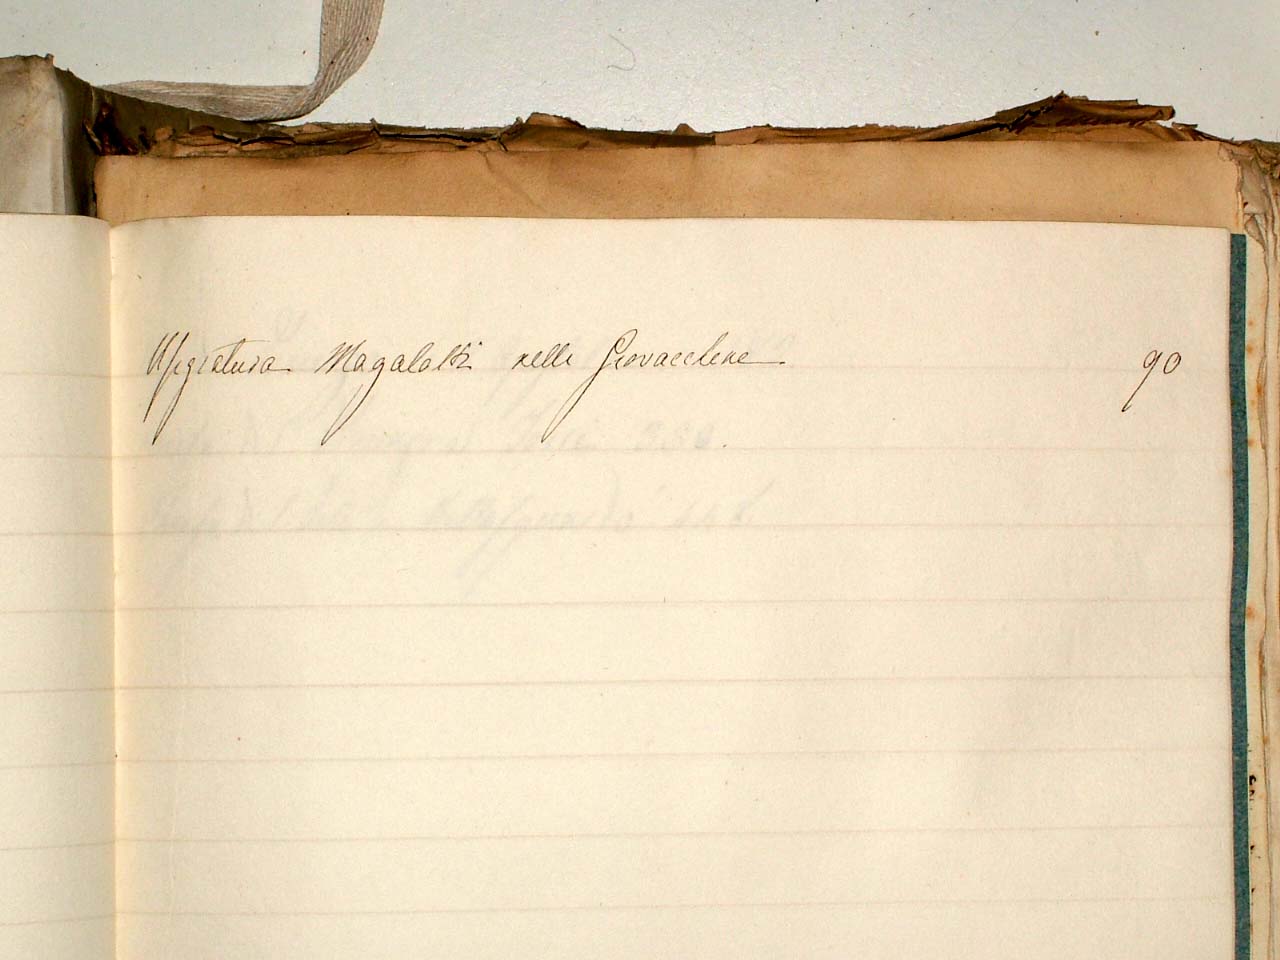 Uffiziatura Magalotti nelle Giovacchine 90